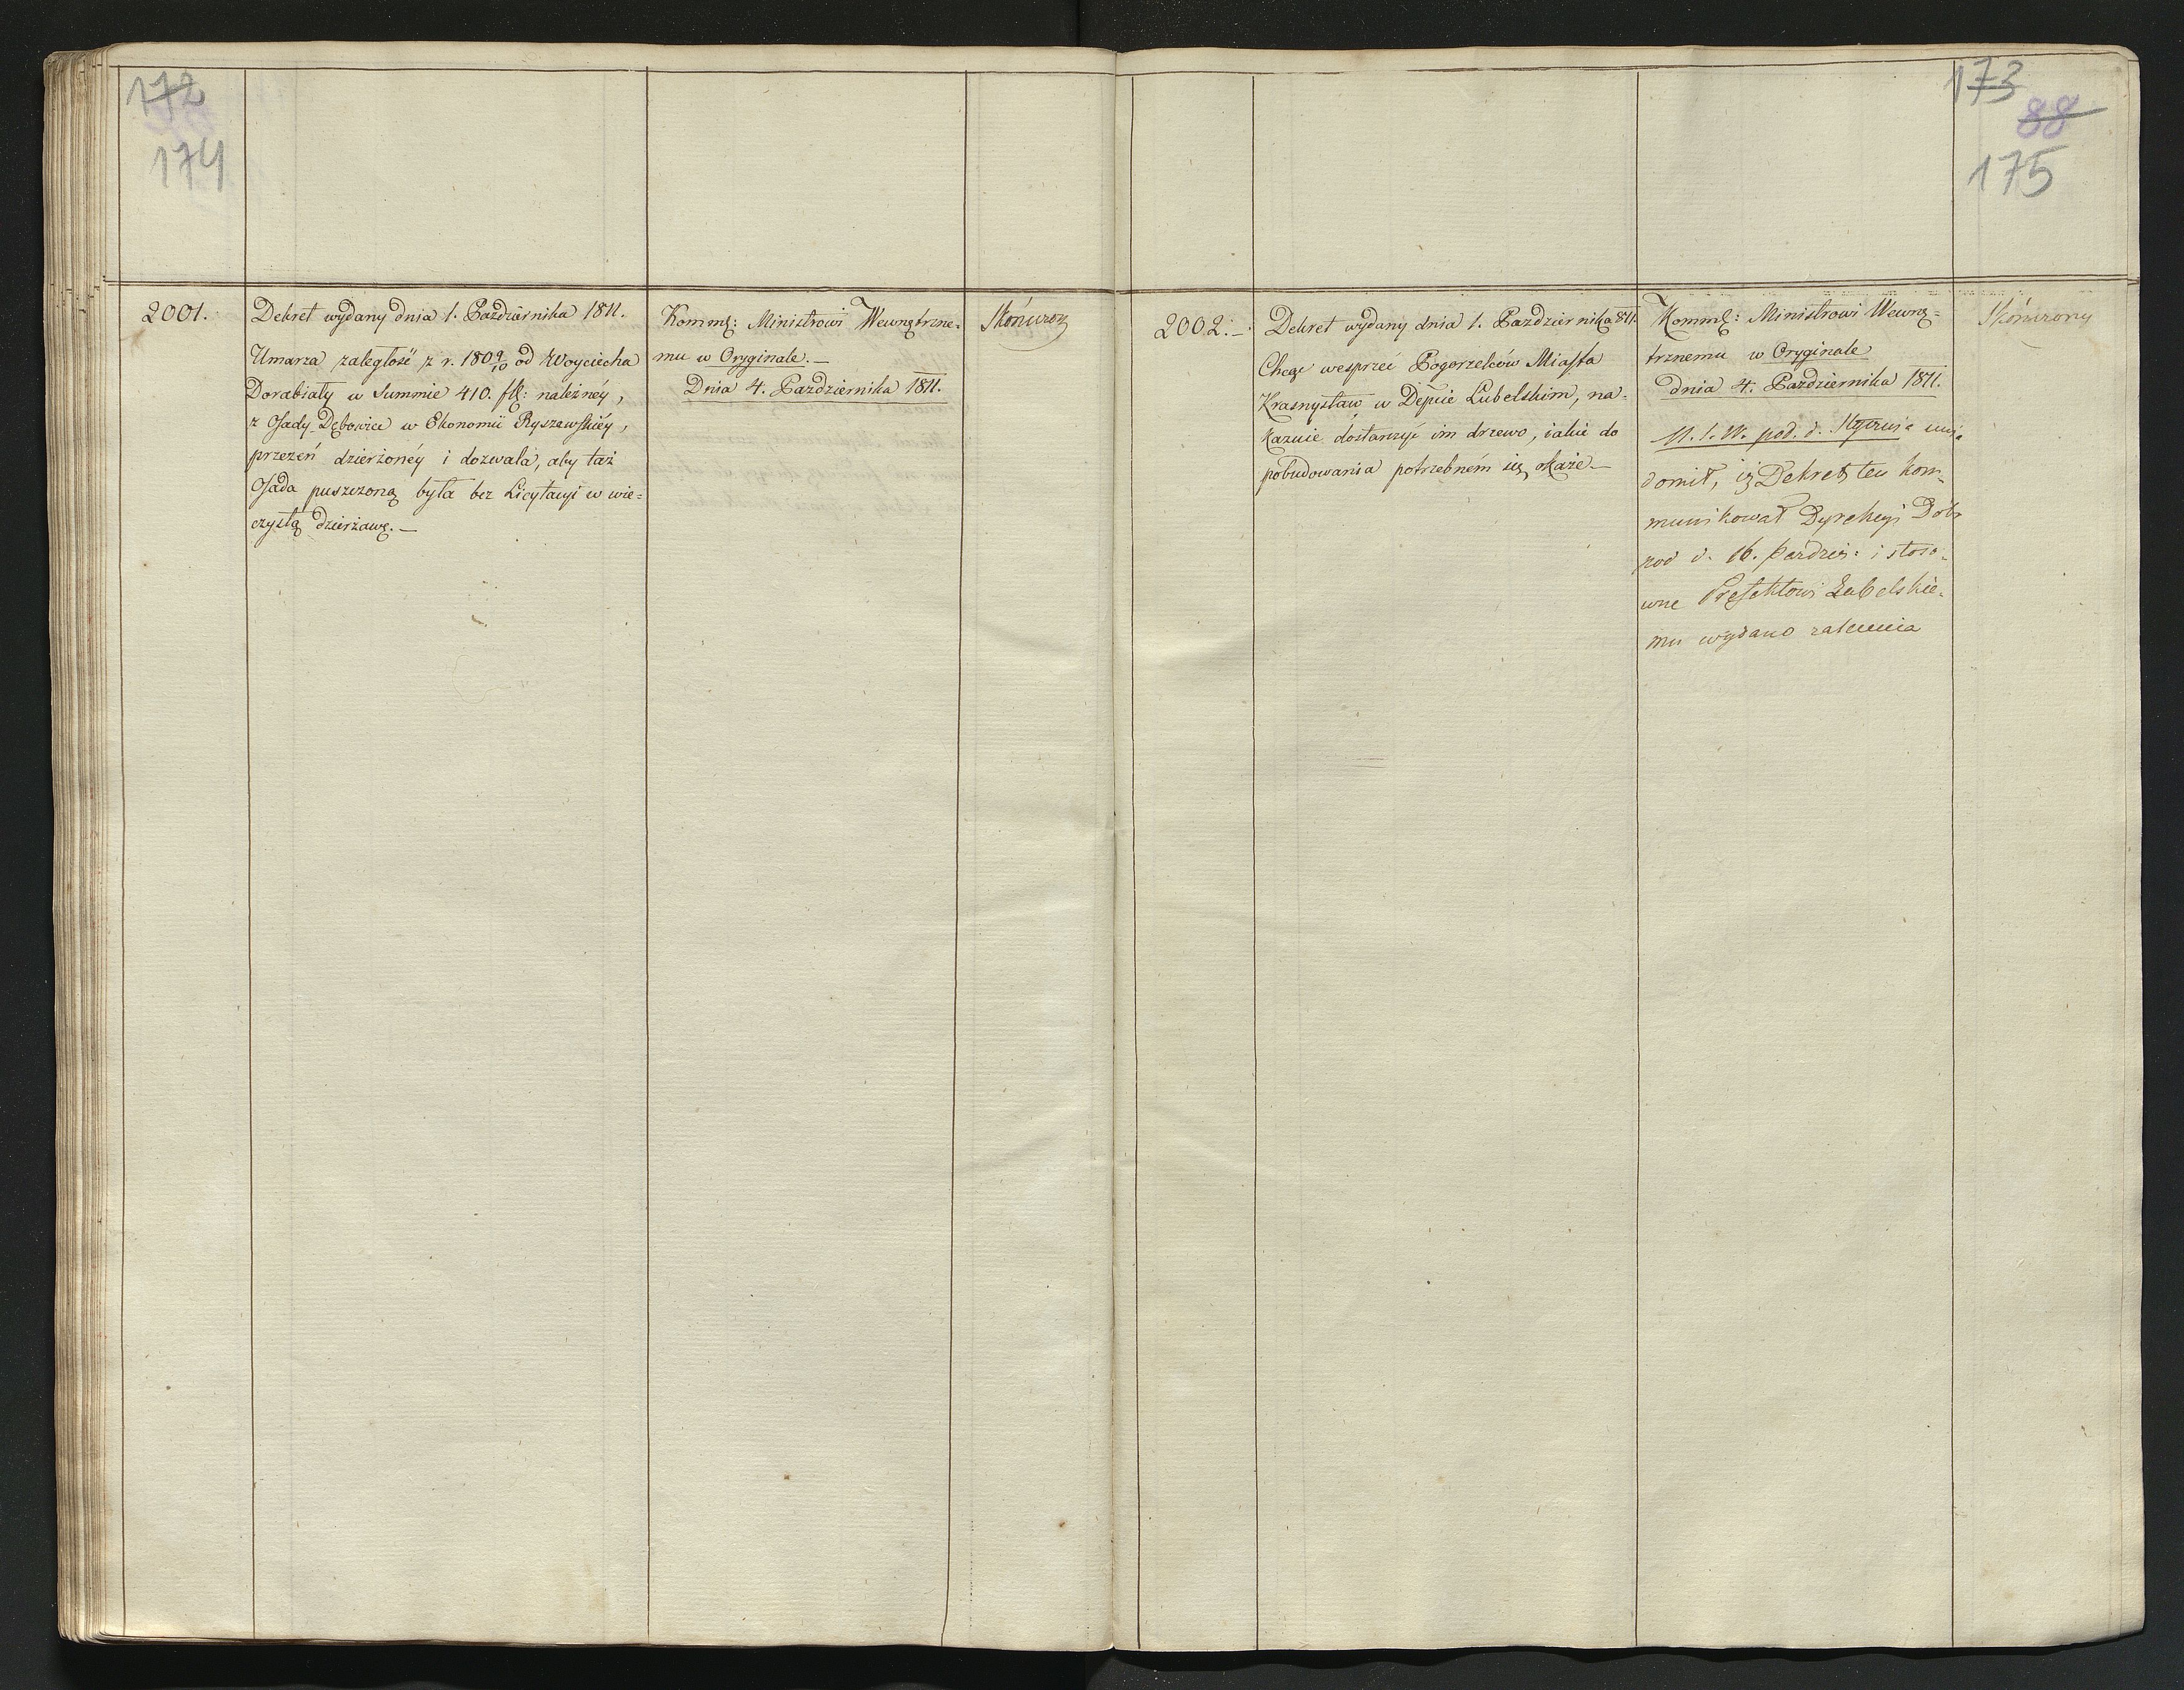 172
174
2001.
Dekret wydany dnia 1. Październiká 1811.
Umarza zaległość z r. 1809/10 od Woyciecha
Dorabiały w Summie 410. flr: należnéy,
z Osady Dębowice w Ekonomii Ryszewskiéy,
przezeń dzierżonéy i dozwala, aby taż
Osada puszczoną była bez Licytacyi w wie=
czystą dzierżawę.—
Kommę: Ministrowi Wewnętrzne=
mu w Oryginale.—
Dnia 4. Października 1811.
Skończony
173
88
175
2002.—
Dekret wydany dnia 1. Października 811.
Chcąc wesprzeć Pogorzelców Miasta
Krasnystaw w Depcie Lubelskim, na=
kazuie dostarczyć im drzewo, iakie do
pobudowania potrzebném się okaże—
Kommę: Ministrowi Wewnę=
trznemu w Oryginale
dnia 4. Października 1811.
M. S. W. pod. d. uwia
domił, iż Dekret ten kom=
munikował Dyrekcyi Dóbr
pod d. 16. Paździer: i stoso=
wne Prefektowi Lubelskie=
mu wydano zalecenia
Skończony